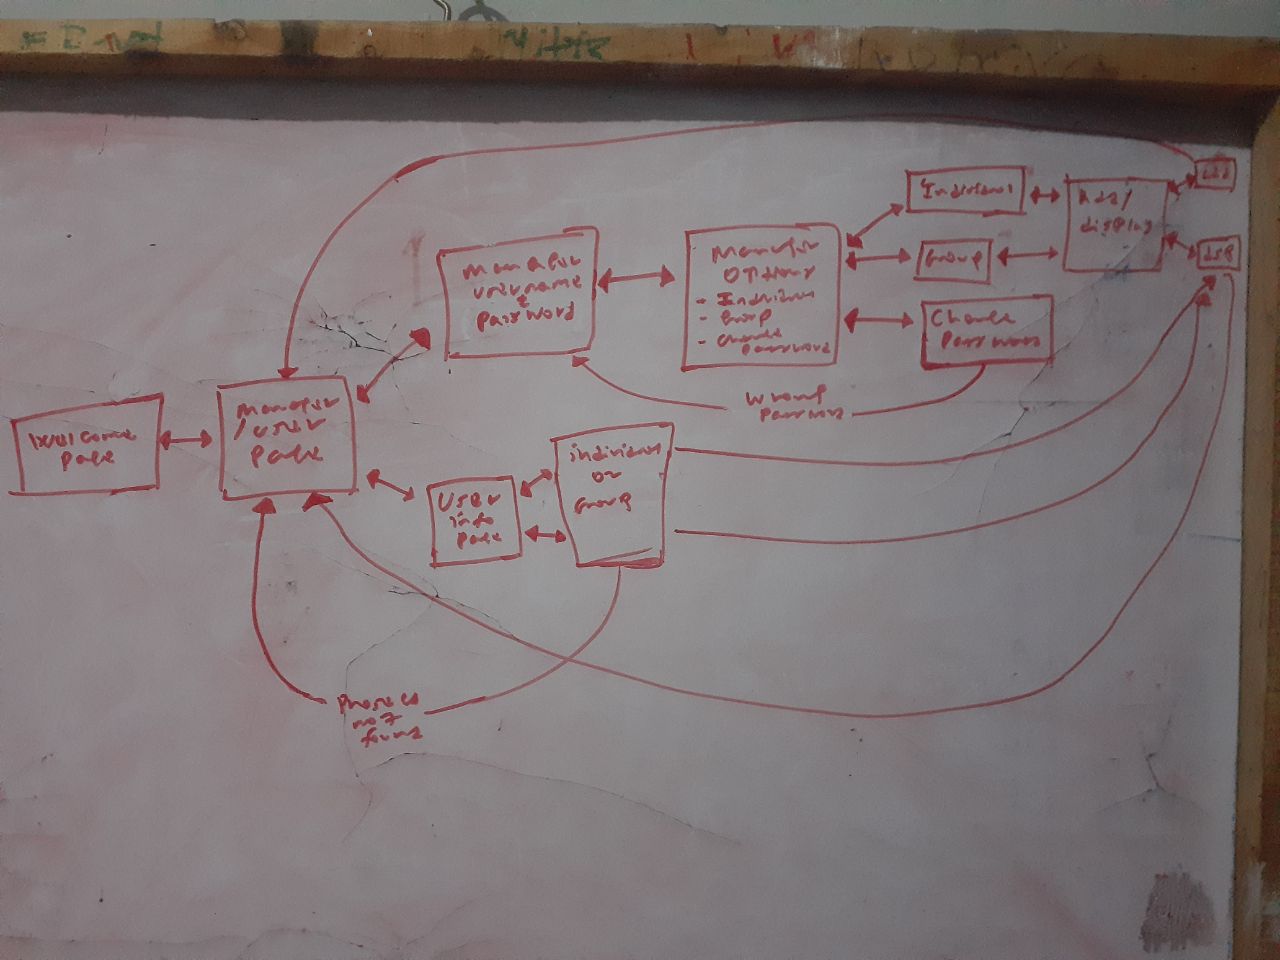 Welcome
page
Manager
/ user
page
Manager
username
&
password
Manager
options
- Individual
- Group
- change
password
Individual
Group
Change
password
Add /
display
add
dsp
wrong
password
User
info
page
individual
or
Group
not
found